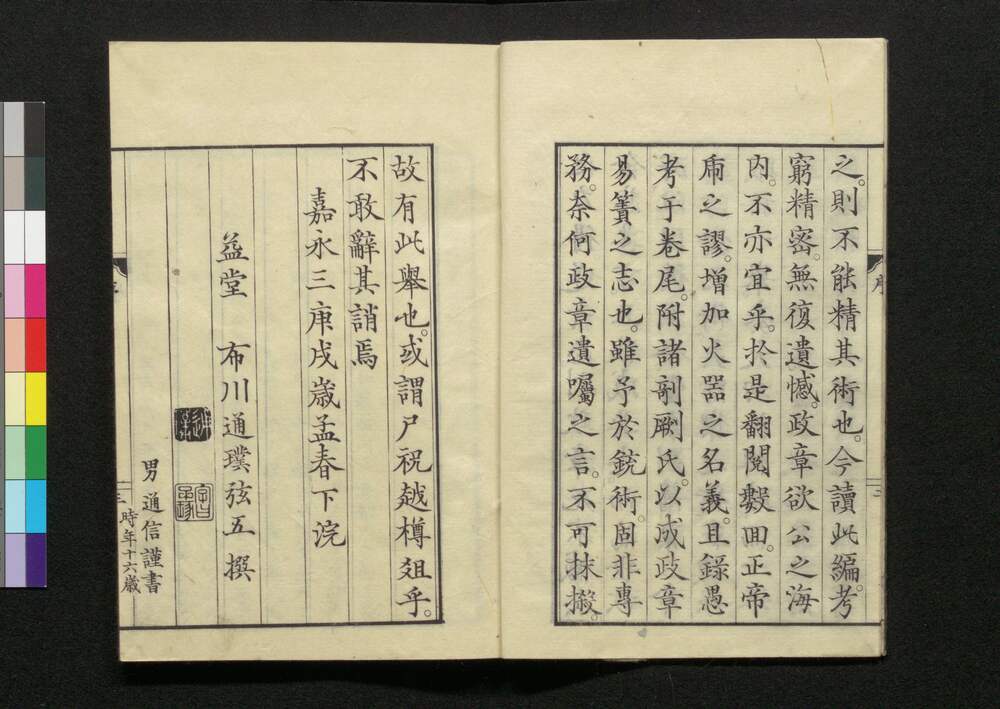 之。則不能精其術也。今讀此編。考
窮精密。無復遺憾。政章欲公之海
内。不亦宜乎。於是翻閲數回。正帝
乕之謬。增加火器之名義。且錄愚
考于卷尾。附諸剞劂氏。以成政章
易簀之志也。雖予於銃術。固非專
務。奈何政章遺囑之言。不可抹摋。
序
三
故有此舉也。或謂尸祝越樽俎乎。
不敢辭其誚焉
嘉永三庚戌歲孟春下浣
益堂　布川通璞弦五撰
男通信謹書
時年十六歲
三